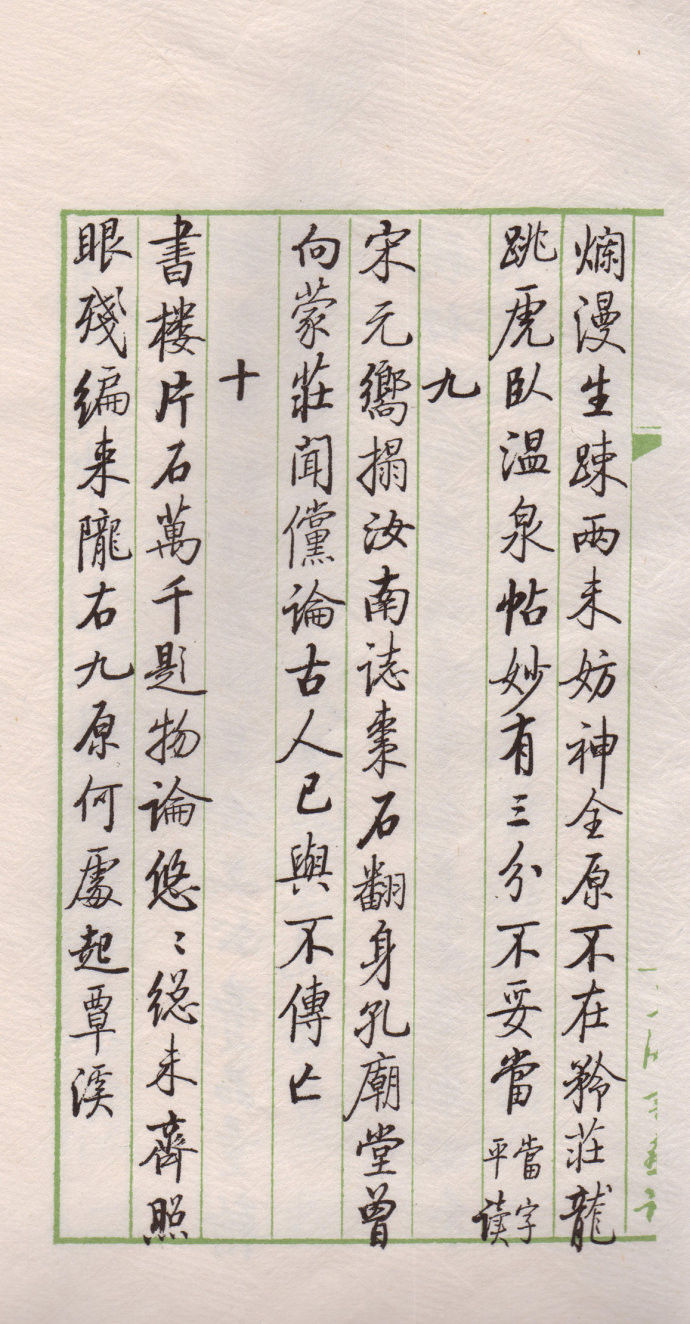 爛漫生疎兩未妨神全原不在矜莊龍
跳虎臥温泉帖妙有三分不妥當 當字平读
九
宋元嚮搨汝南誌棗石翻身孔廟堂曾
向蒙莊聞儻論古人已與不傳亡
十
書楼片石萬千題物論悠〻総未齊照
眼殘編来隴右九原何處起覃溪